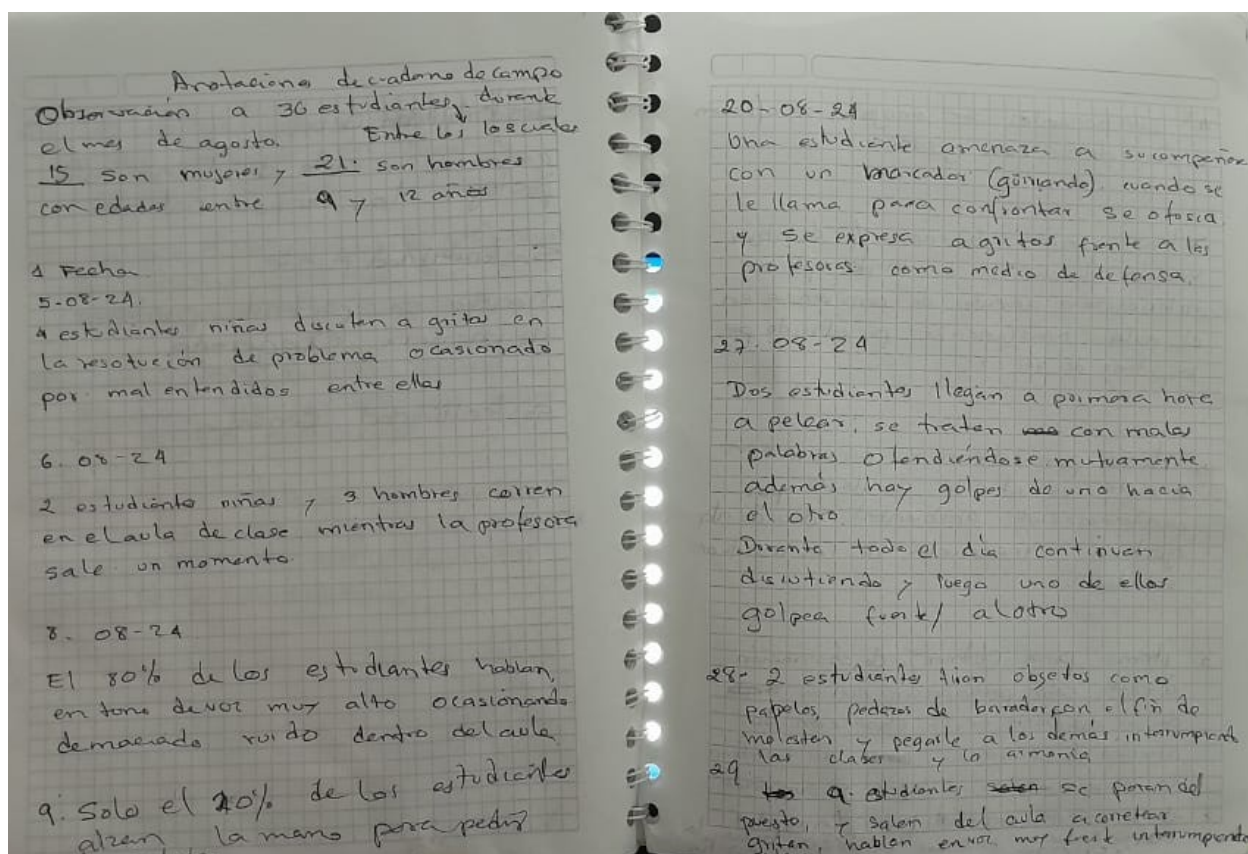 Anotaciones de cuaderno de campo
Observación a 36 estudiantes, durante
el mes de agosto. Entre los los cuales
15 son mujeres y 21. son hombres
con edades entre 9 y 12 años
1 Fecha
5-08-24.
4 estudiantes niñas discuten a gritos en
la resolución de problema ocasionado
por mal entendidos entre ellas
6. 08-24
2 estudiante niñas y 3 hombres corren
en el aula de clase mientras la profesora
sale un momento.
8. 08-24
El 80% de los estudiantes hablan,
en tono de voz muy alto ocasionando
demaciado ruido dentro del aula
9. Solo el % de los estudiantes
alzan la mano para pedir
20-08-24
Una estudiante amenaza a su compeñera
con un marcador cuando se
le llama para confrontar se ofosca
y se expresa a gritos frente a los
profesores como medio de defensa.
27. 08-24
Dos estudiantes llegan a primera hora
a pelear, se tratan con malas
palabras ofendiéndose mutuamente
además hay golpes de uno hacia
el otro
Durante todo el día continuan
discutiendo y luego uno de ellos
golpea a l otro
28- 2 estudiantes tiran objetos como
papeles, pedazos de borrador con el fin de
molesten y pegarle a los demás interrumpiendo
las clases y la armonía
29
9. estudiantes se paran del
puesto, y salen del aula a corretear
gritan, hablan en voz muy interrumpiendo